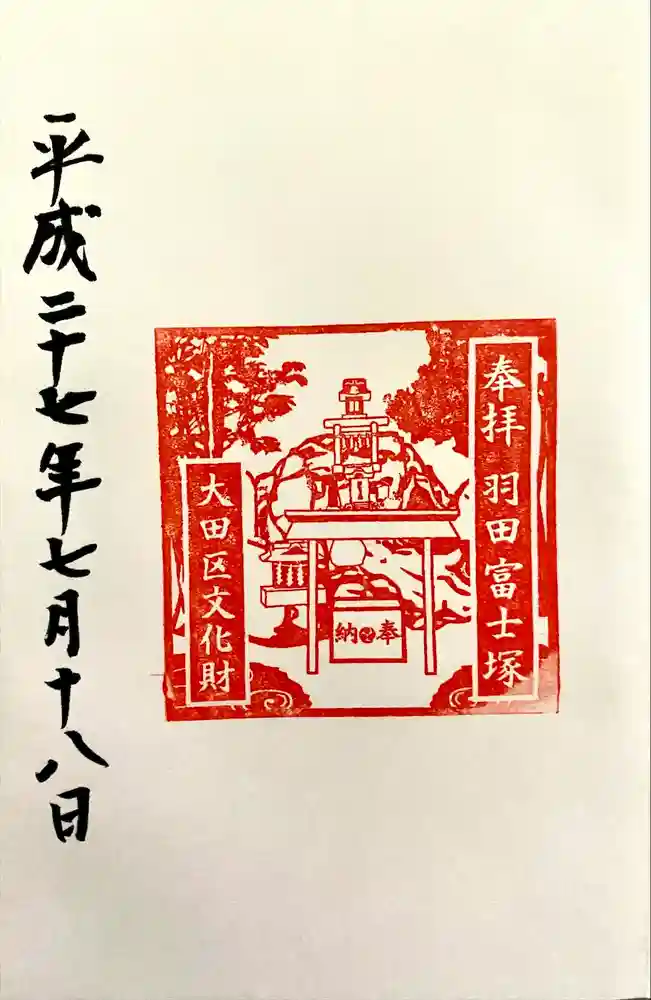 奉拝 羽田富士塚
奉納
大田区文化財
平成二十七年七月十八日